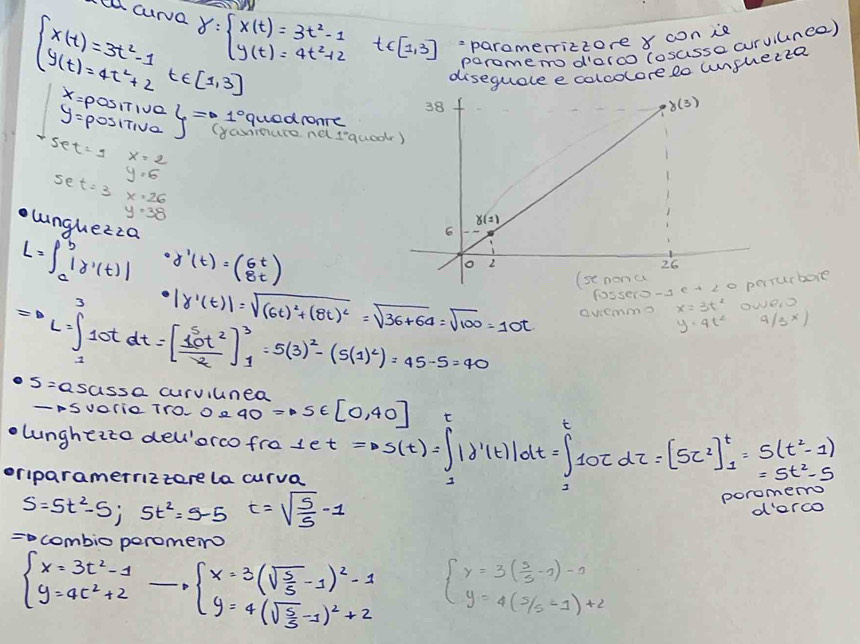 curva γ: { x(t) = 3t²-1 t∈[1,3] = parametrizzare γ con il
y(t) = 4t²+2 parametro d'arco (ascissa curvilinea)
disegnale e calcolare la lunghezza
{ x(t) = 3t²-1
y(t) = 4t²+2 t∈[1,3]
x=positiva } => 1° quadrante
y=positiva (γ nel 1° quadr)
se t=1 x=2
y=6
se t=3 x=26
y=38
38 γ(3)
γ(1)
6
0 2 26
(se non ci
fossero -1 e +2 a perturbare
avremmo x=3t² ovvero
y=4t² 4/3x)
• lunghezza
L = ∫ₐᵇ |γ'(t)| • γ'(t) = (6t
8t)
• |γ'(t)| = √(6t)²+(8t)² = √36+64 = √100 = 10t
=> L = ∫₁³ 10t dt = [10t²/2]₁³ 5 = 5(3)² - (5(1)²) = 45-5 = 40
• s = ascissa curvilinea
→ s varia tra 0 e 40 => s∈[0,40]
• lunghezza dell'arco fra 1 e t => s(t) = ∫₁ᵗ |γ'(t)|dt = ∫₁ᵗ 10τ dτ = [5τ²]₁ᵗ = 5(t²-1)
= 5t²-5
parametro
d'arco
• riparametrizzare la curva
S = 5t²-5; 5t² = S-5 t = √S/5 - 1
=> cambio parametro
{ x = 3t²-1 → { x = 3(√S/5 - 1)² - 1 { x = 3(S/5 - 1) - 1
y = 4t²+2 y = 4(√S/5 - 1)² + 2 y = 4(S/5 - 1) + 2